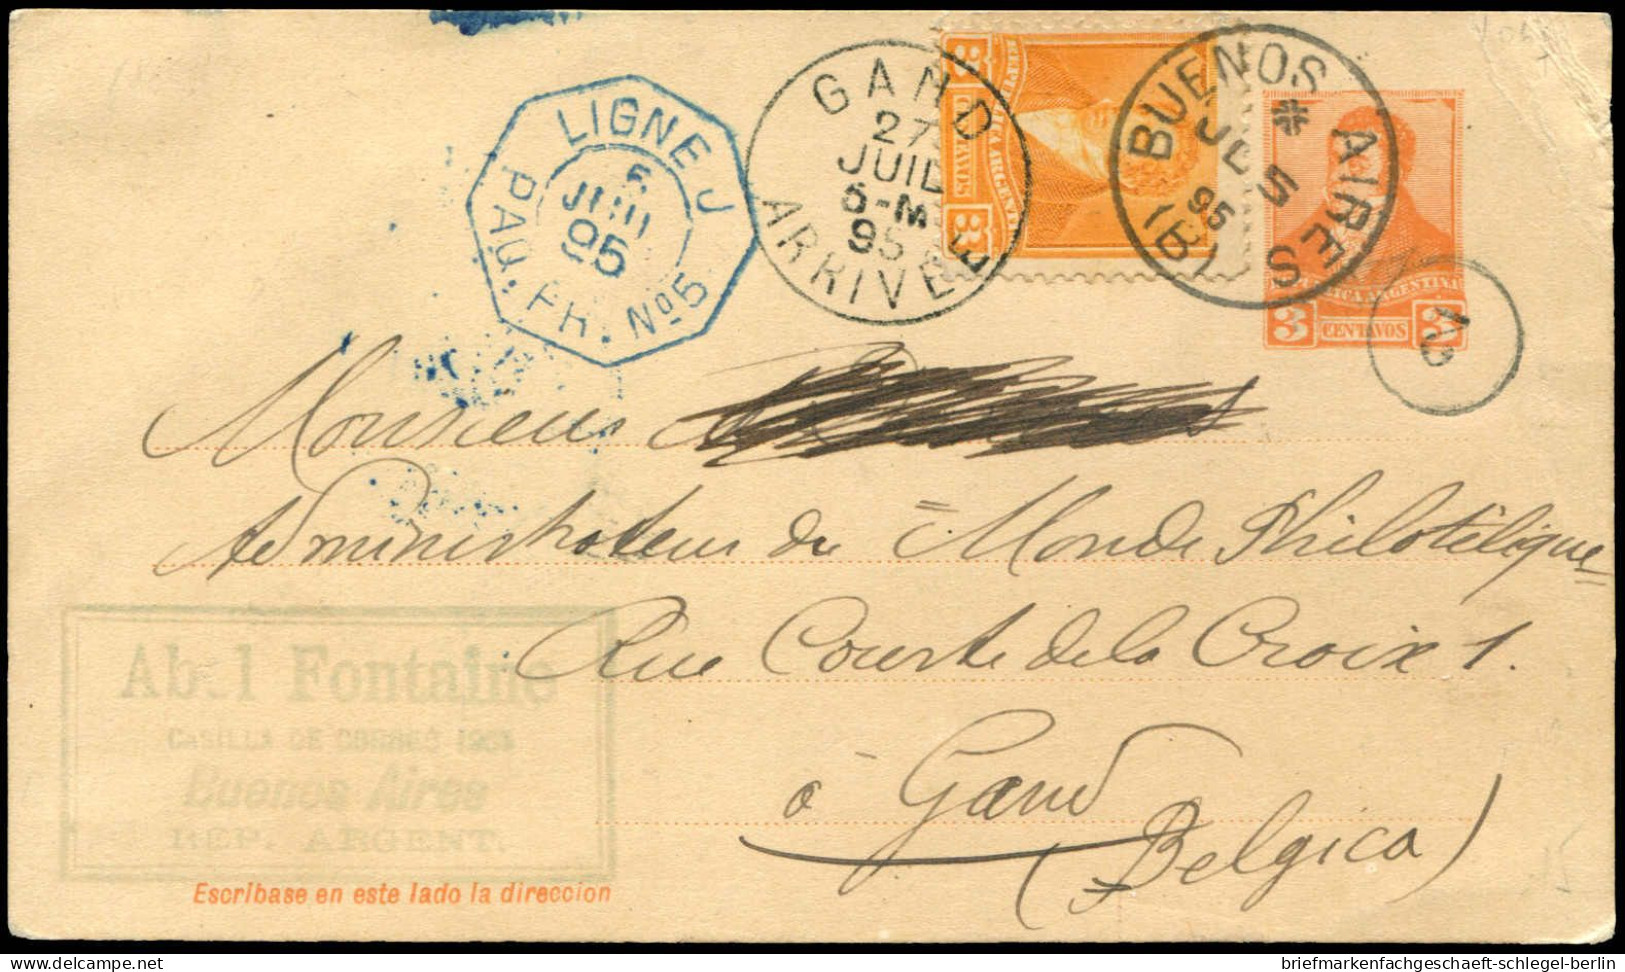 LIGNE J
5
JUIL
95
PAQ. FR. No 5
GAND
27
JUIL
5-M
95
ARRIVEE
3
CENTAVOS
3
BUENOS AIRES
JL 5
95
(B)
REPUBLICA ARGENTINA
3 CENTAVOS 3
Monsieur
Administrateur du Monde Philotélique
Rue Courte de la Croix 1.
à Gand
(Belgica)
Abel Fontaine
CASILLA DE CORREO
Buenos Aires
REP. ARGENT.
Escribase en este lado la direccion
briefmarkenfachgeschaeft-schlegel-berlin